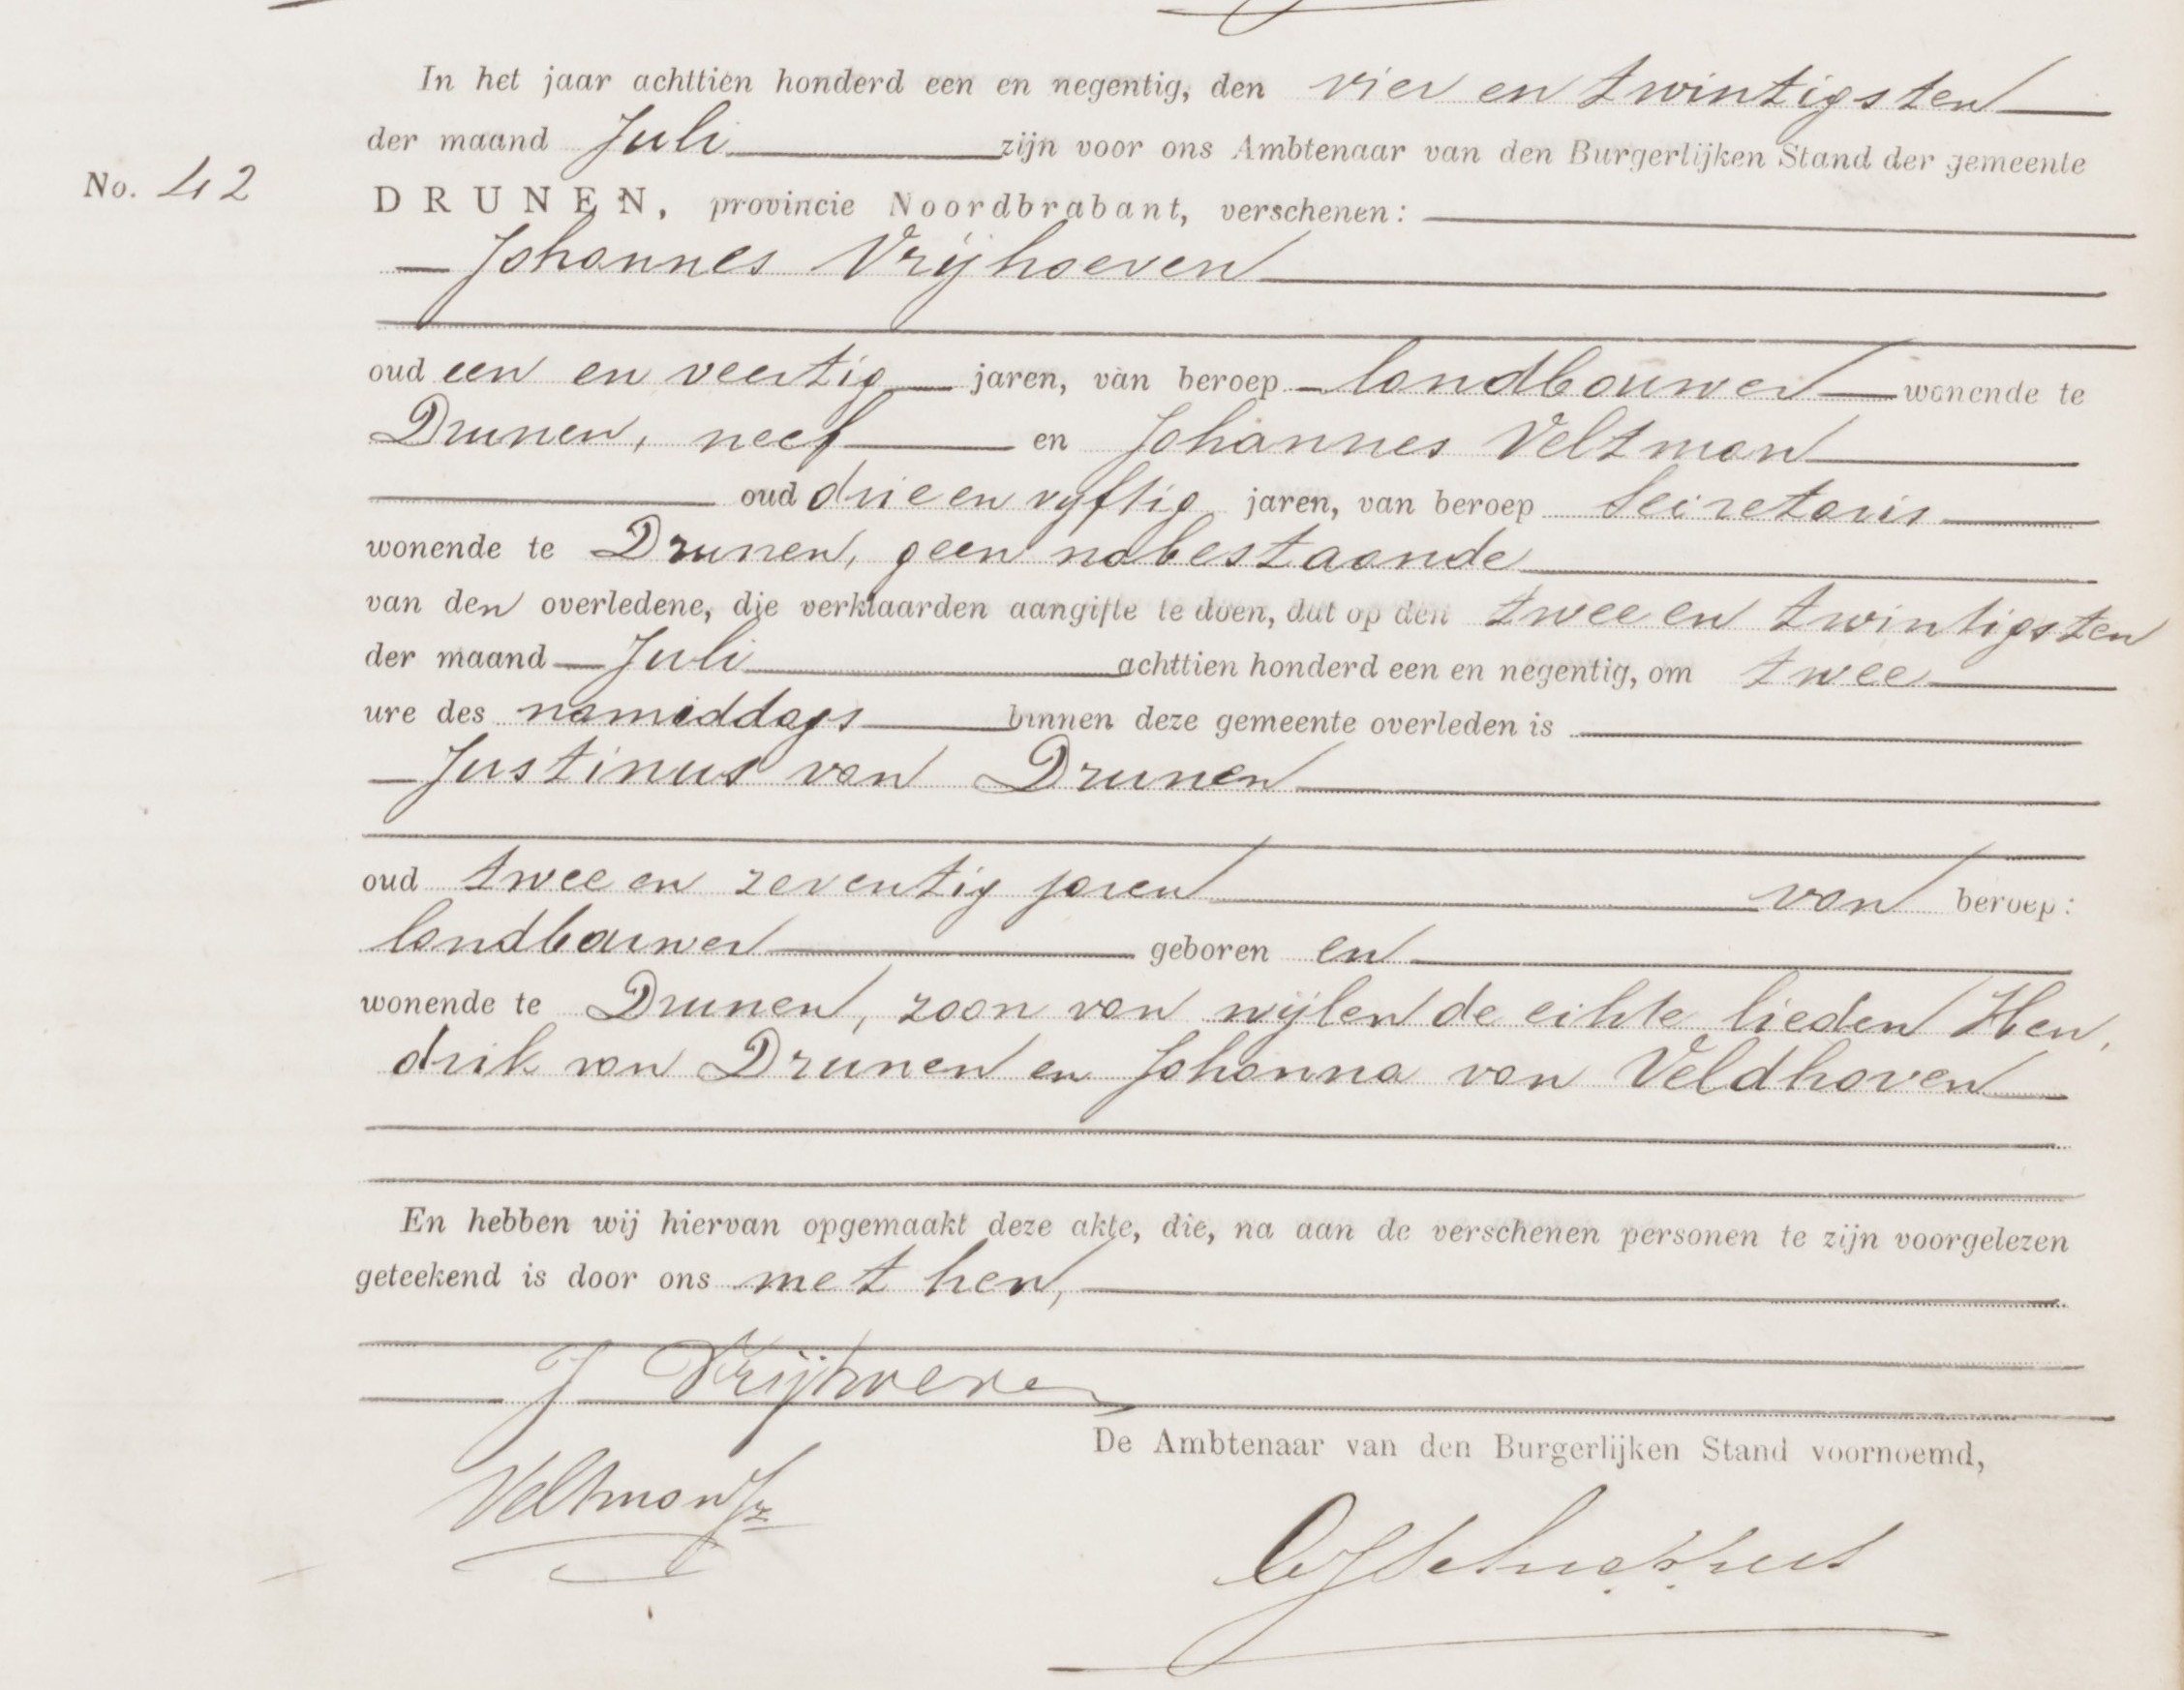 In het jaar achttien honderd een en negentig, den vier en twintigsten
der maand Juli zijn voor ons Ambtenaar van den Burgerlijken Stand der gemeente
No. 42
DRUNEN, provincie Noordbrabant, verschenen:
Johannes Vrijhoeven
oud een en veertig jaren, van beroep landbouwer wonende te
Drunen, neef en Johannes Veltman
oud drie en vyftig jaren, van beroep Secretaris
wonende te Drunen, geen nabestaande
van den overledene, die verklaarden aangifte te doen, dat op den twee en twintigsten
der maand Juli achttien honderd een en negentig, om twee
ure des namiddags binnen deze gemeente overleden is
Justinus van Drunen
oud twee en zeventig jaren van beroep:
landbouwer geboren en
wonende te Drunen, zoon van wijlen de echte lieden Hen,
drik van Drunen en Johanna van Veldhoven
En hebben wij hiervan opgemaakt deze akte, die, na aan de verschenen personen te zijn voorgelezen
geteekend is door ons met hen,
J Vrijhoeven
De Ambtenaar van den Burgerlijken Stand voornoemd,
Veltman Jz